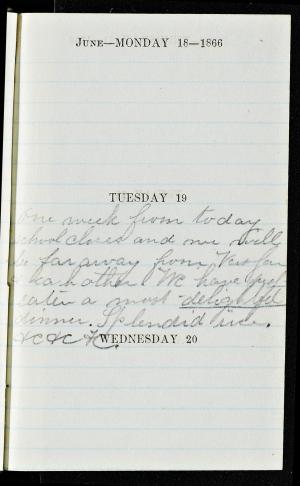 June—MONDAY 18—1866
TUESDAY 19
One week from today
school closes and we will
be far away from Vassar
& each other We have just
eaten a most delightful
dinner. Splendid ice.
&c &c &c.
WEDNESDAY 20